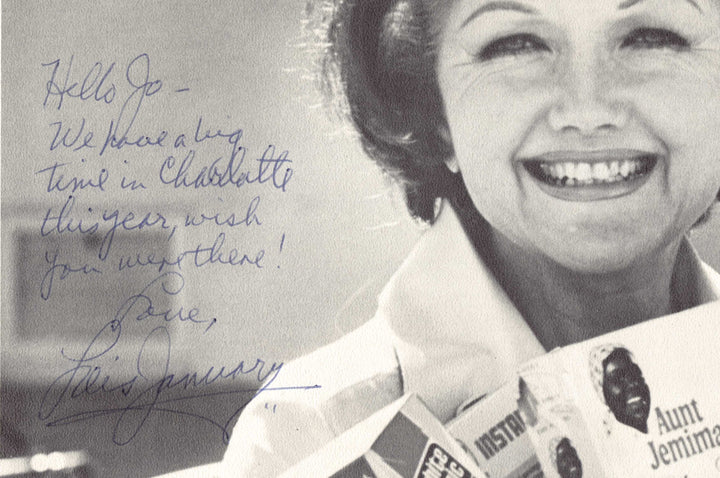 Hello Jo -
We have a big
time in Charlotte
this year, wish
you were there!
Love,
Lois January
Aunt
Jemima
INSTA